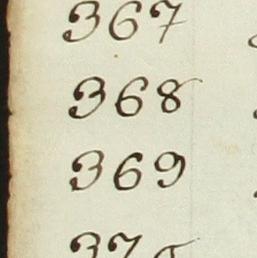 367
368
369